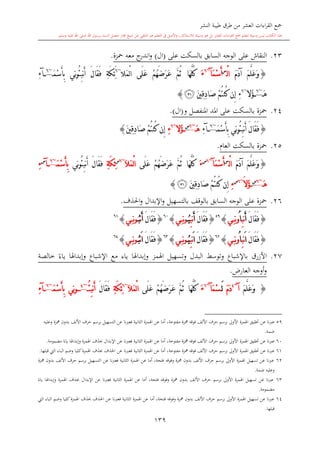 جمع القراءات العشر من طرق طيبة النشر
٢٣. النقاش على الوجه السابق بالسكت على (ال) واندرج معه حمزة.
﴿ وَعَلَّمَ ءَادَمَ ٱلْأَسْمَآءَ كُلَّهَا ثُمَّ عَرَضَهُمْ عَلَى ٱلْمَلَٰٓئِكَةِ فَقَالَ أَنۢبِـُٔونِى بِأَسْمَآءِ
هَٰٓؤُلَآءِ إِن كُنتُمْ صَٰدِقِينَ ﴿٣١﴾ ﴾
٢٤. حمزة بالسكت على المد المنفصل و(ال).
﴿ فَقَالَ أَنۢبِـُٔونِى بِأَسْمَآءِ هَٰٓؤُلَآءِ إِن كُنتُمْ صَٰدِقِينَ ﴾
٢٥. حمزة بالسكت العام.
﴿ وَعَلَّمَ ءَادَمَ ٱلْأَسْمَآءَ كُلَّهَا ثُمَّ عَرَضَهُمْ عَلَى ٱلْمَلَٰٓئِكَةِ فَقَالَ أَنۢبِـُٔونِى بِأَسْمَآءِ
هَٰٓؤُلَآءِ إِن كُنتُمْ صَٰدِقِينَ ﴿٣١﴾ ﴾
٢٦. حمزة على الوجه السابق بالوقف بالتسهيل والإبدال والحذف.
﴿ فَقَالَ ﴾ ٥٩ ﴿ فَقَالَ ﴾ ٦٠ ﴿ فَقَالَ ﴾ ٦١
﴿ فَقَالَ ﴾ ٦٢ ﴿ فَقَالَ ﴾ ٦٣ ﴿ فَقَالَ ﴾ ٦٤
٢٧. الأزرق بالإشباع وتوسط البدل وتسهيل الهمز وإبدالها ياء مع الإشباع وإبدالها ياءً خالصة
وأوجه العارض.
﴿ وَعَلَّمَ ءَادَمَ ٱلْأَسْمَآءَ كُلَّهَا ثُمَّ عَرَضَهُمْ عَلَى ٱلْمَلَٰٓئِكَةِ فَقَالَ أَنۢبِـُٔونِى بِأَسْمَآءِ
٥٩ عبرنا عن تحقيق الهمزة الأولى برسم حرف الألف فوقه همزة مفتوحة، أما عن الهمزة الثانية فعبرنا عن التسهيل برسم حرف الألف بدون همزة وعليه
ضمة.
٦٠ عبرنا عن تحقيق الهمزة الأولى برسم حرف الألف فوقه همزة مفتوحة، أما عن الهمزة الثانية فعبرنا عن الإبدال بحذف الهمزة وإبدالها ياءً مضمومة.
٦١ عبرنا عن تحقيق الهمزة الأولى برسم حرف الألف فوقه همزة مفتوحة، أما عن الهمزة الثانية فعبرنا عن الحذف بحذف الهمزة كليًا وضم الباء التي قبلها.
٦٢ عبرنا عن تسهيل الهمزة الأولى برسم حرف الألف بدون همزة وفوقه فتحة، أما عن الهمزة الثانية فعبرنا عن التسهيل برسم حرف الألف بدون همزة
وعليه ضمة.
٦٣ عبرنا عن تسهيل الهمزة الأولى برسم حرف الألف بدون همزة وفوقه فتحة، أما عن الهمزة الثانية فعبرنا عن الإبدال بحذف الهمزة وإبدالها ياءً
مضمومة.
٦٤ عبرنا عن تسهيل الهمزة الأولى برسم حرف الألف بدون همزة وفوقه فتحة، أما عن الهمزة الثانية فعبرنا عن الحذف بحذف الهمزة كليًا وضم الباء التي
قبلها.
١٣٩